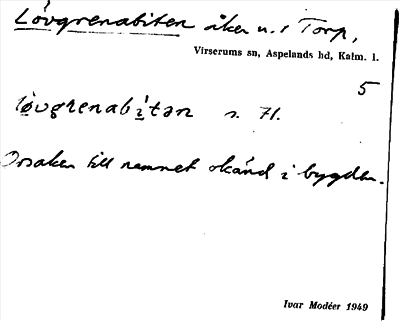 Lövgrenabiten åker n. 1 Torp,
Virserums sn, Aspelands hd, Kalm. l.
5
løvgrenabitan s. 71.
Orsaken till namnet okänd i bygden.
Ivar Modéer 1949